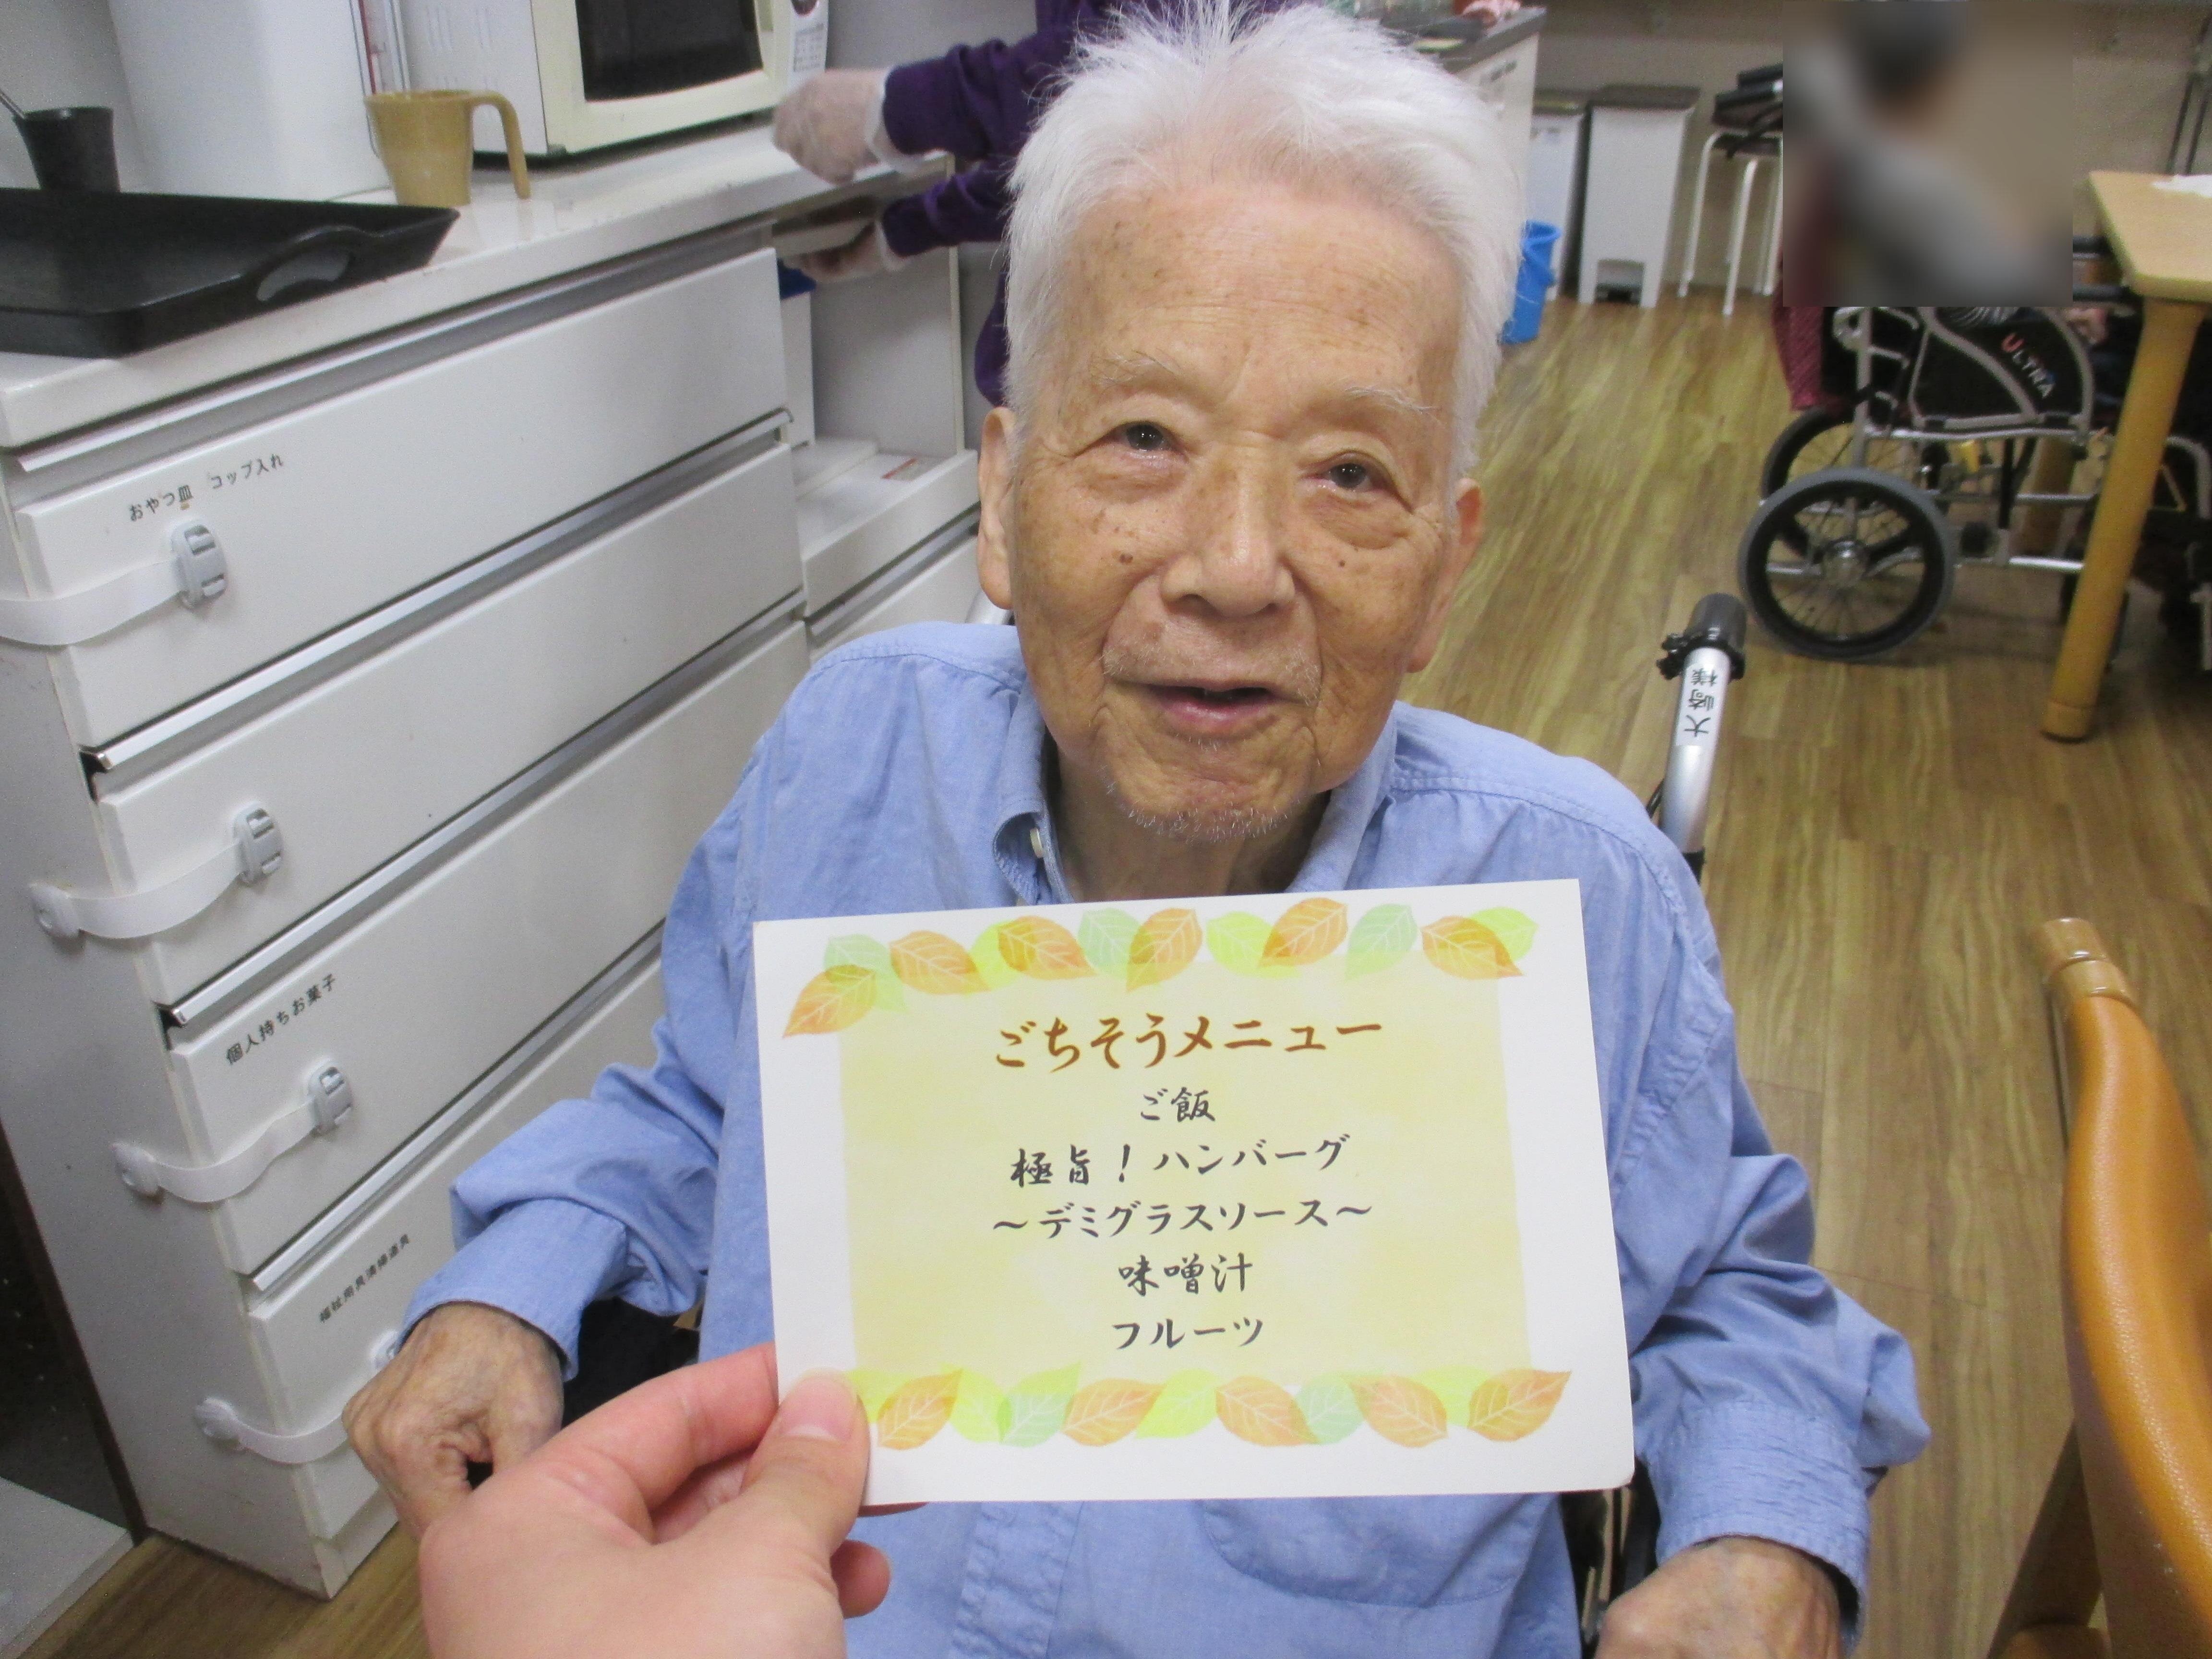 おやつ皿 コップ入れ
個人持ちお菓子
福祉用具清掃道具
ULTRA
大崎様
ごちそうメニュー
ご飯
極旨！ハンバーグ
～デミグラスソース～
味噌汁
フルーツ